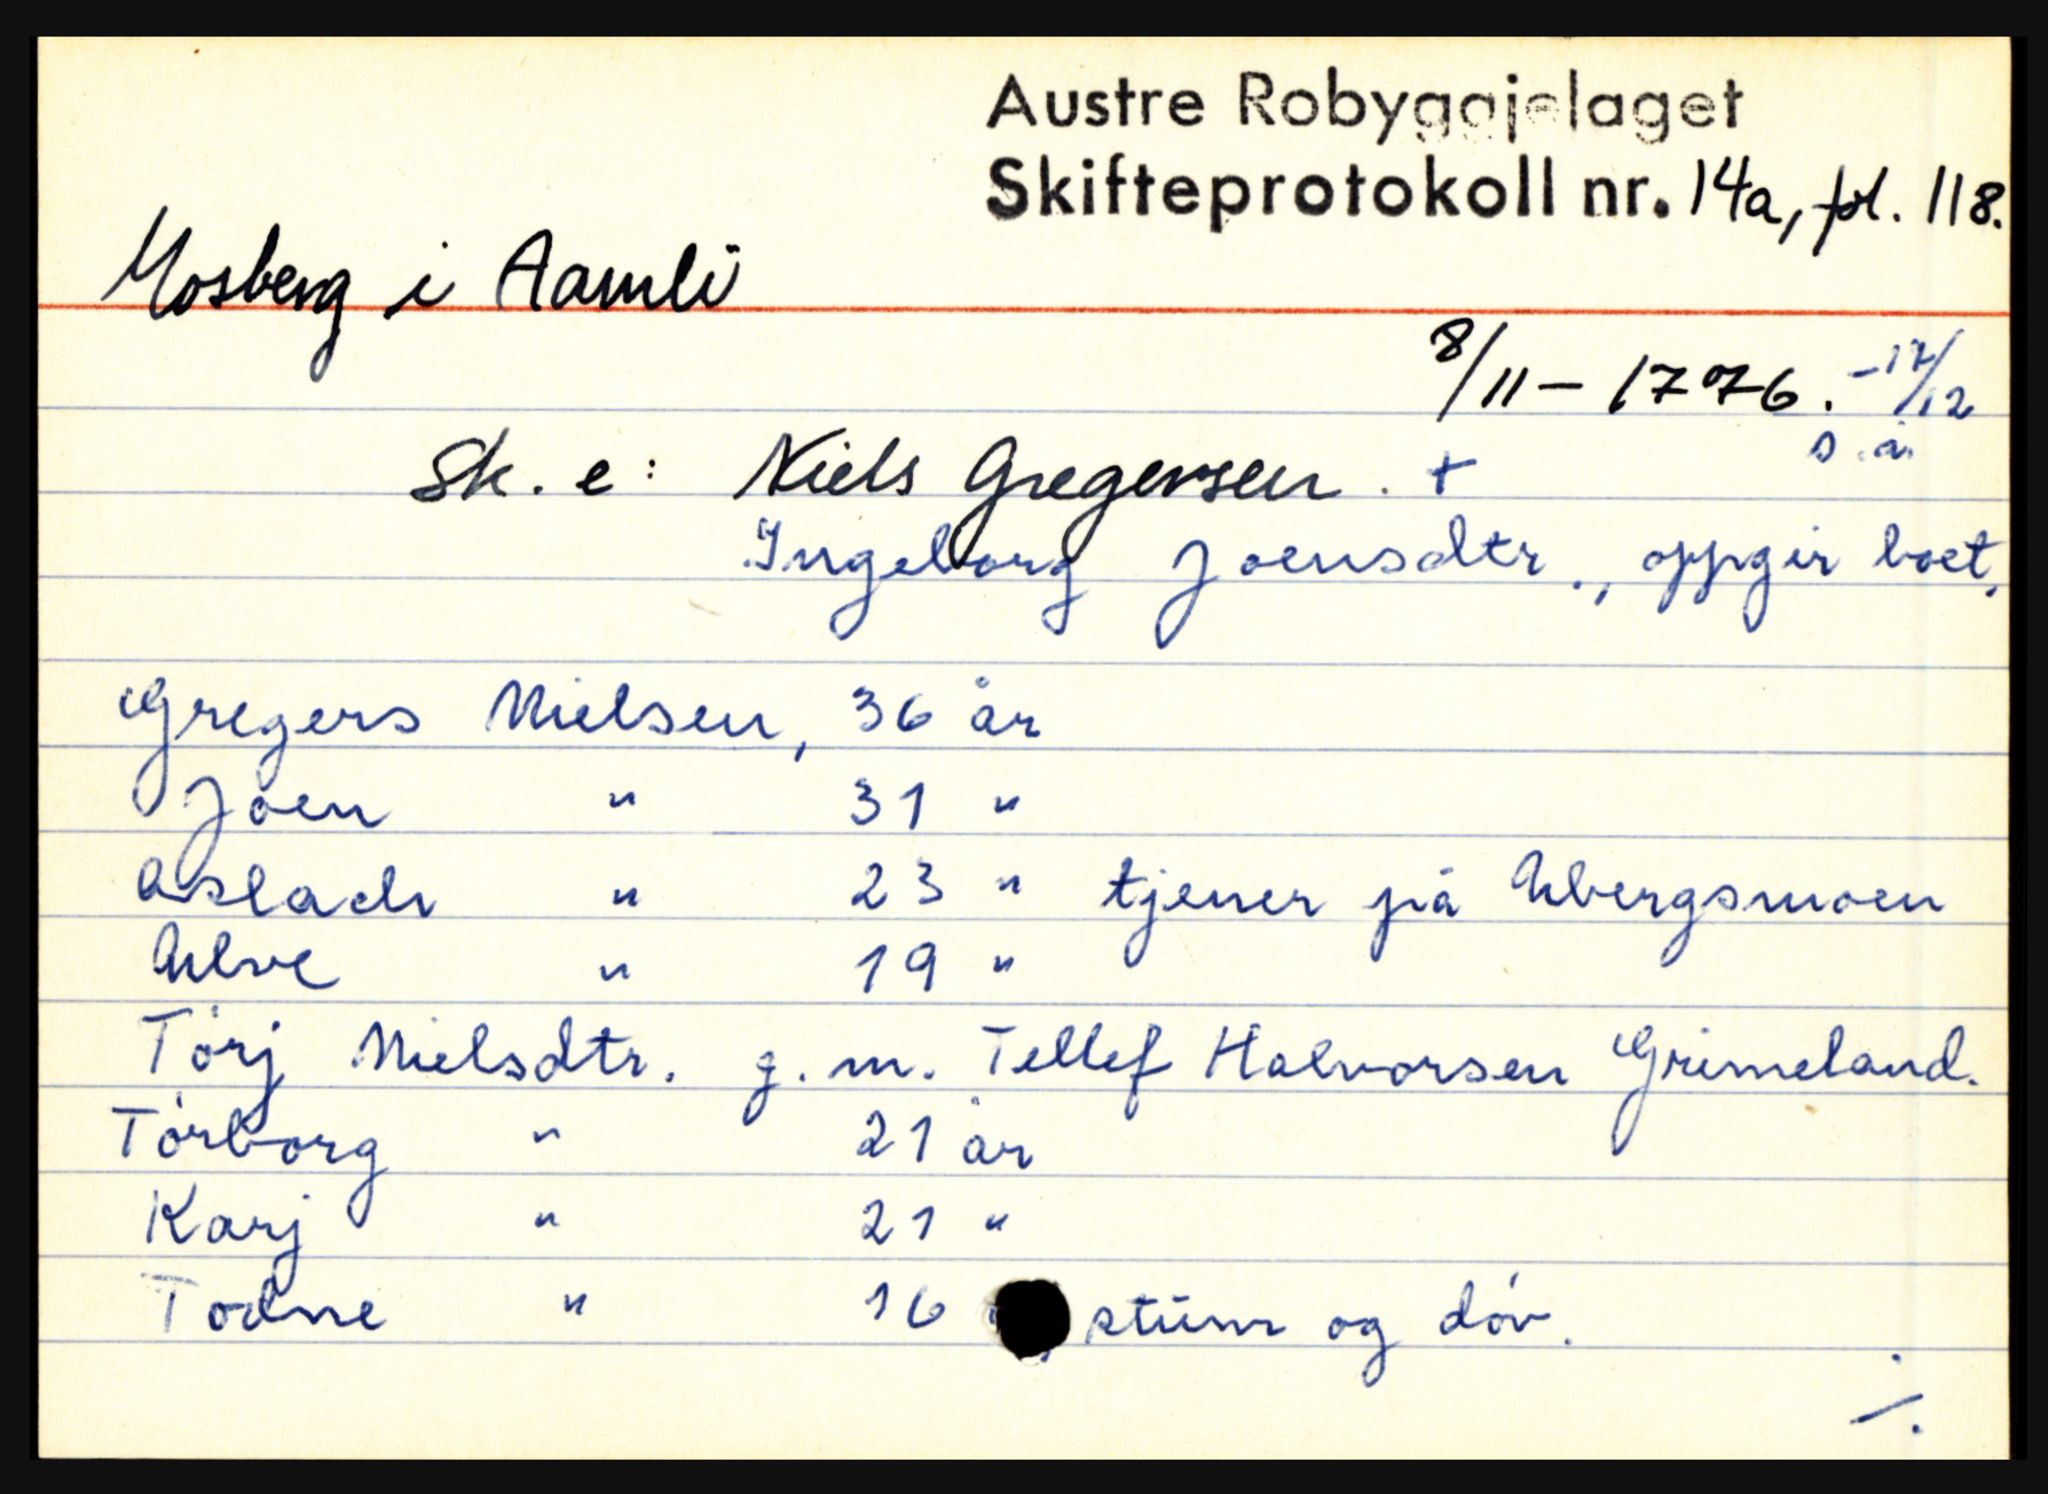 Austre Robyggjelaget
Skifteprotokoll nr. 14a, fol. 118.
Mosberg i Aamli
8/11 - 1776. - 17/12
s.å.
Sk. e: Niels Gregersen. +
Ingeborg Joensdtr., oppgir boet,
Gregers Nielsen, 36 år
Joen " 31 "
Aslach " 23 " tjener på Ubergsmoen
Ulve " 19 "
Torj Nielsdtr. g. m. Tellef Halvorsen Grimeland.
Torborg " 21 år
Karj " 21 "
Todne " 16 ", stum og døv.
./.